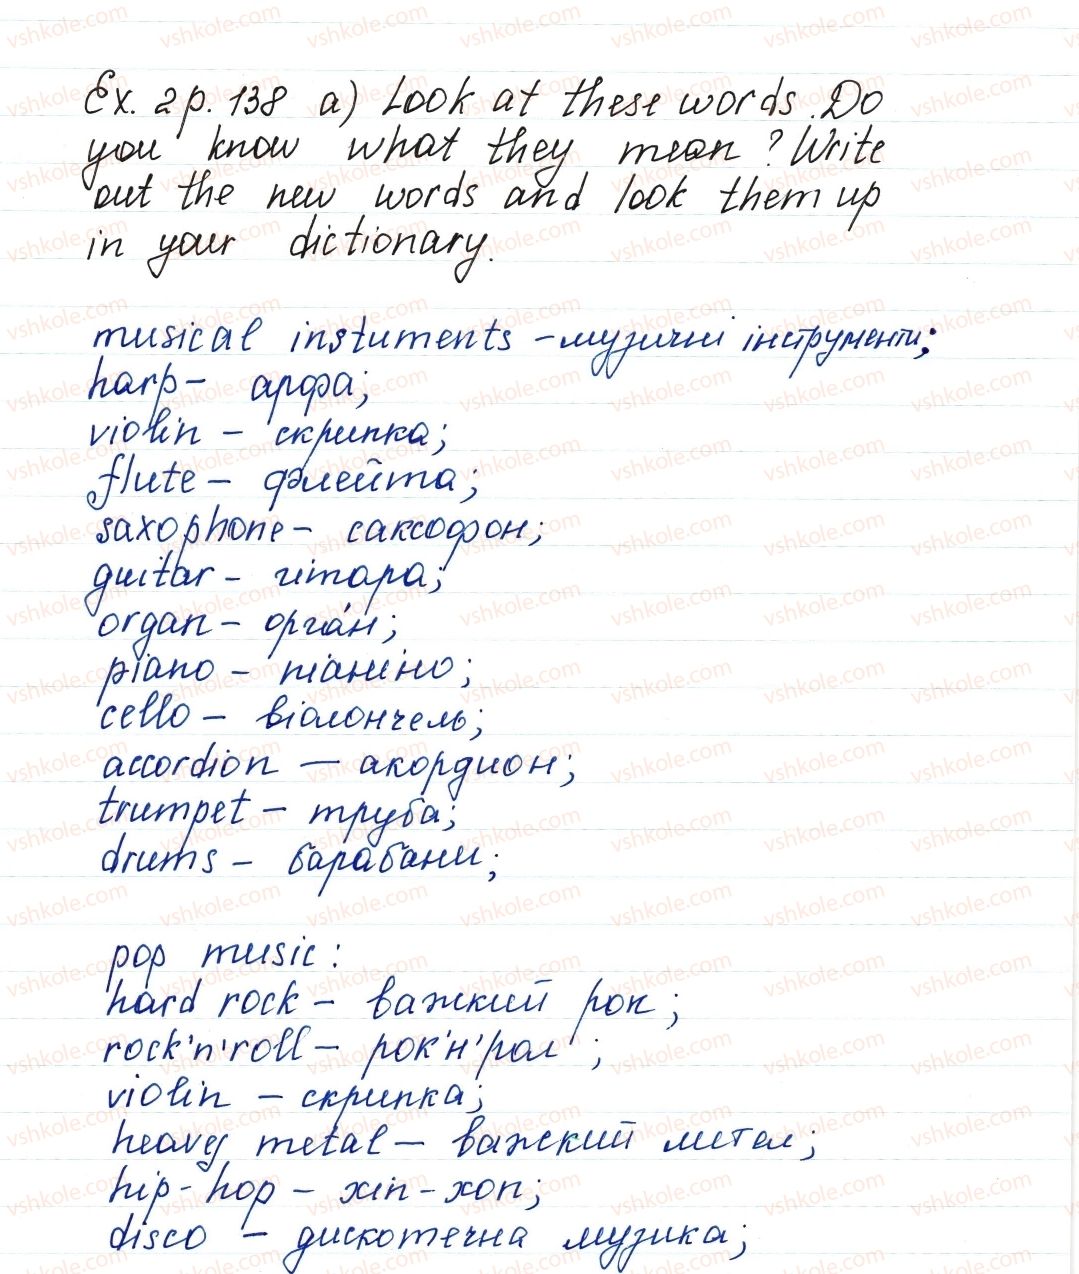 Ex. 2 p. 138 a) Look at these words. Do
you know what they mean? Write
out the new words and look them up
in your dictionary.
musical instuments - музичні інструменти;
harp - арфа;
violin - скрипка;
flute - флейта;
saxophone - саксофон;
guitar - гітара;
organ - орга́н;
piano - піаніно;
cello - віолончель;
accordion - акордион;
trumpet - труба;
drums - барабани;
pop music:
hard rock - важкий рок;
rock'n'roll - рок'н'рол;
violin - скрипка;
heavy metal - важкий метал;
hip-hop - хіп-хоп;
disco - дискотечна музика;
vshkole.com